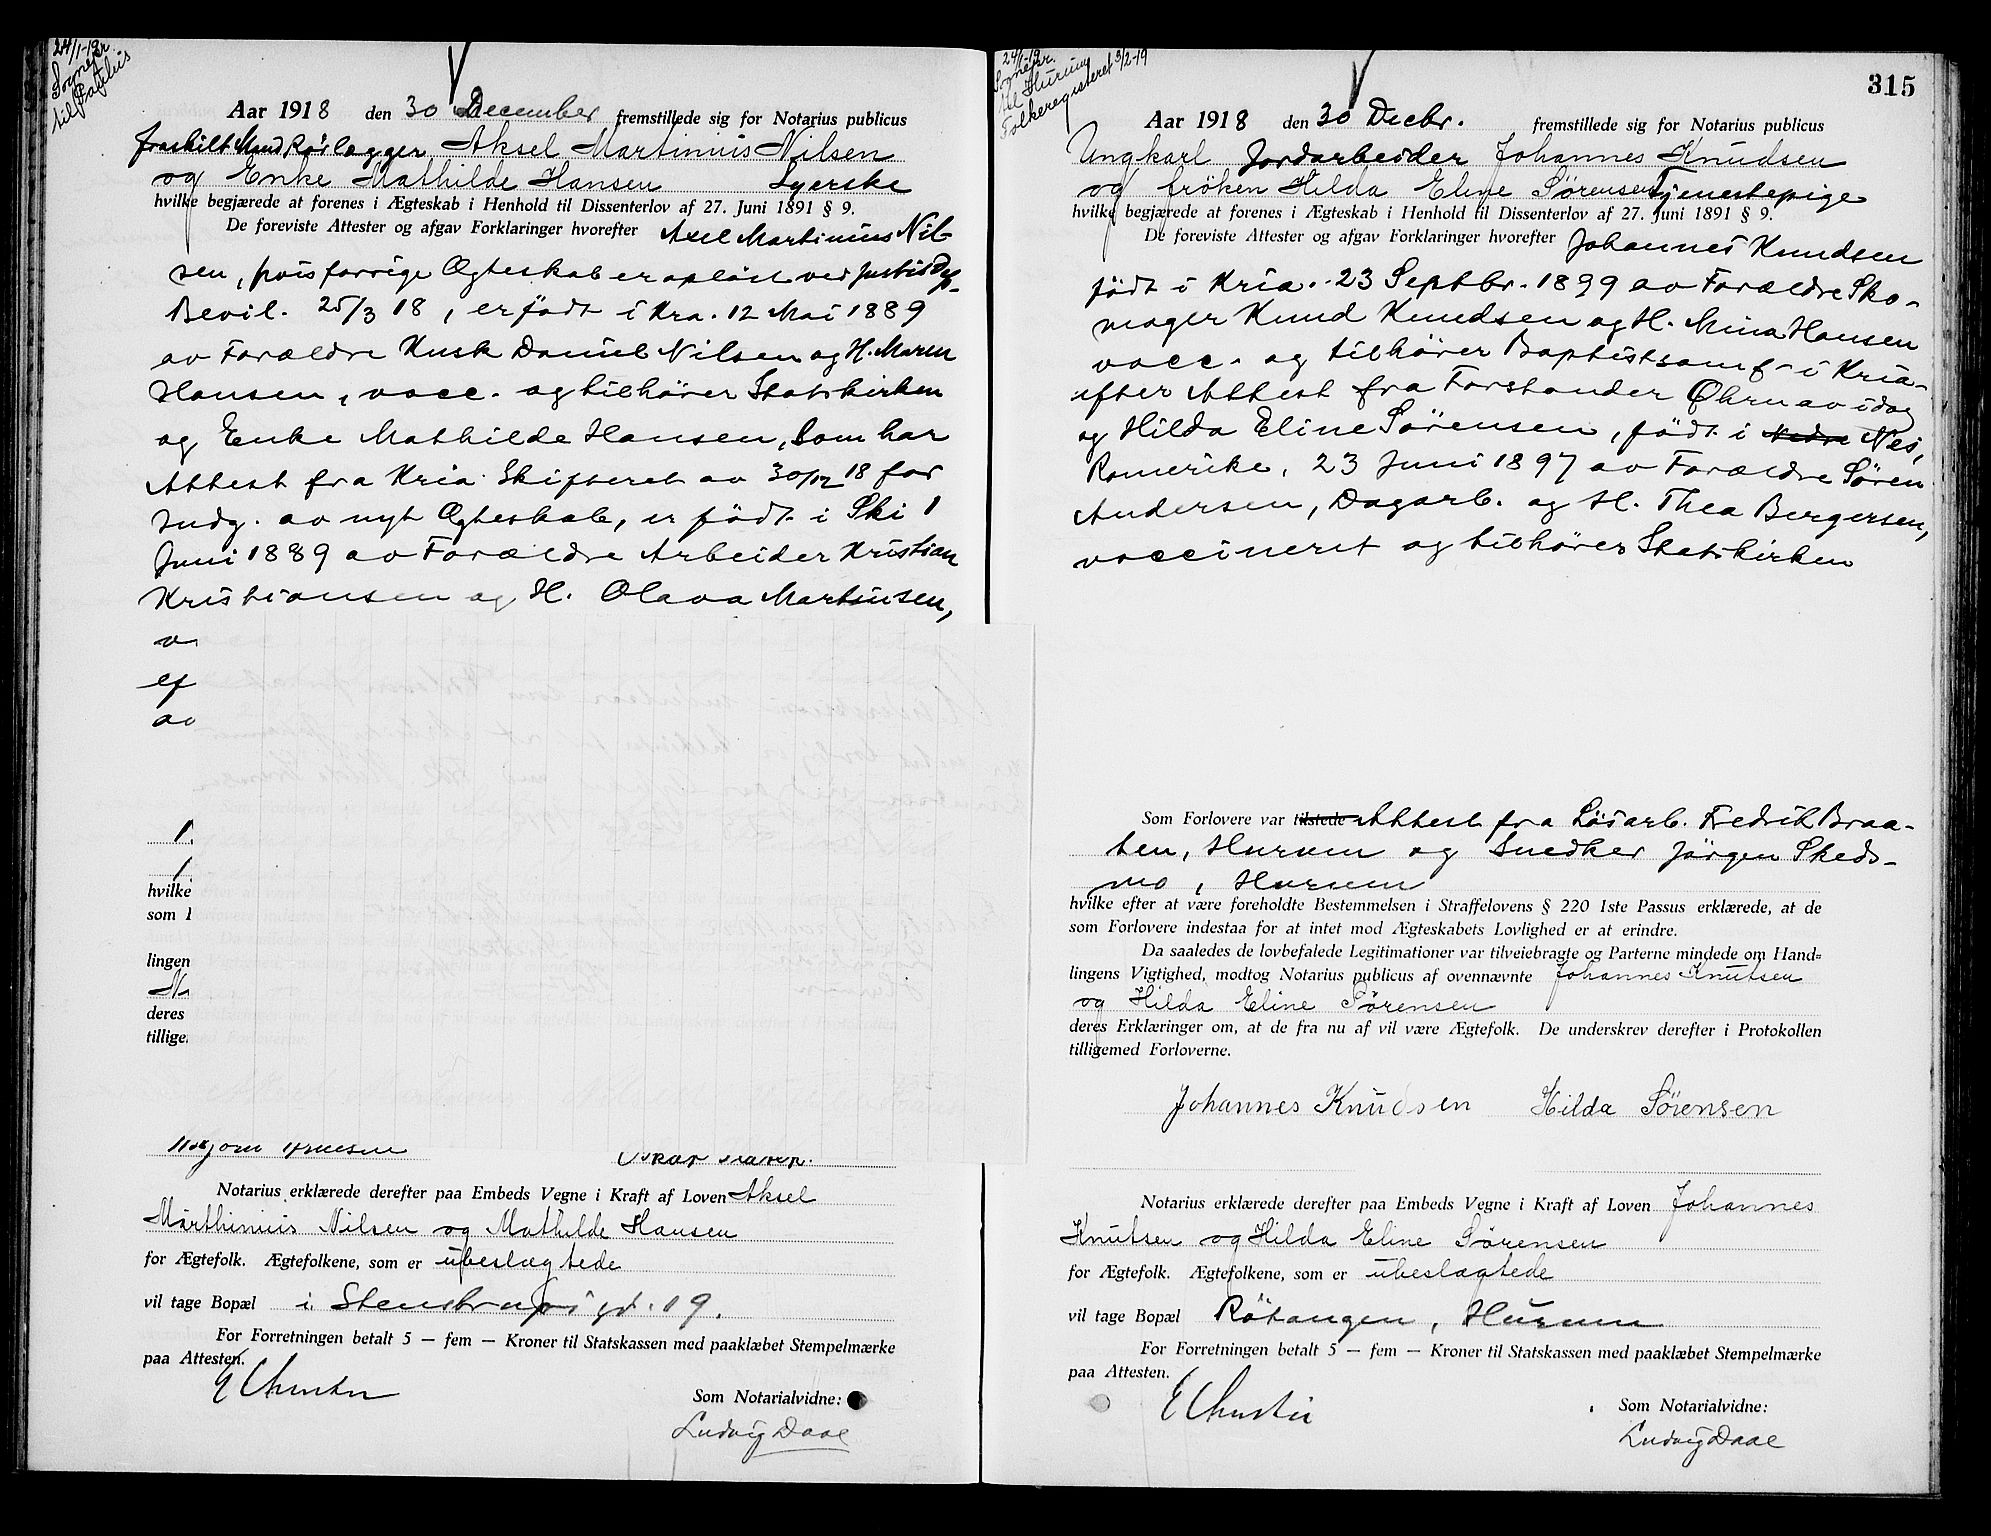 24/1-19.
Sogner.
til Paulus
Aar 1918 den 30 December fremstillede sig for Notarius publicus
fraskilt Mand Rørlægger Aksel Martinius Nilsen
og Enke Mathilde Hansen Syerske
hvilke begjærede at forenes i Ægteskab i Henhold til Dissenterlov af 27. Juni 1891 § 9.
De foreviste Attester og afgav Forklaringer hvorefter Axel Martinius Nil-
sen, hvis forrige Ægteskab er opløst ved Justisdep-
Bevil. 25/3 18, er født i Kra. 12 Mai 1889
av Forældre Kusk Daniel Nilsen og H. Maren
Hansen, vacc. og tilhører Statskirken
og Enke Mathilde Hansen, som har
Attest fra Kria Skifteret av 30/12 18 for
Indg. av nyt Ægteskab, er født i Ski 1
Juni 1889 av Forældre Arbeider Kristian
Kristiansen og H. Olava Martinsen,
v
ef
av
hvilke
som
lingen
deres
tillige
Oskar
Notarius erklærede derefter paa Embeds Vegne i Kraft af Loven Aksel
Marthinius Nilsen og Mathilde Hansen
for Ægtefolk. Ægtefolkene, som er ubeslægtede
vil tage Bopæl i Stenstrupsgt. 19.
For Forretningen betalt 5 — fem — Kroner til Statskassen med paaklæbet Stempelmærke
paa Attesten.
E Christie
Som Notarialvidne:
Ludvig Daae
315
24/1-19
Sogner.
til Hurum
Folkeregisteret 3/2-19
Aar 1918 den 30 Decbr. fremstillede sig for Notarius publicus
Ungkarl Jordarbeider Johannes Knudsen
og frøken Hilda Eline Sørensen Tjenestepige
hvilke begjærede at forenes i Ægteskab i Henhold til Dissenterlov af 27. Juni 1891 § 9.
De foreviste Attester og afgav Forklaringer hvorefter Johannes Knudsen
født i Kria. 23 Septbr. 1899 av Forældre Sko-
mager Knud Knudsen og H. Mina Hansen
vacc. og tilhører Baptistsamf- i Kria-
efter Attest fra Forstander Øhrn av idag
og Hilda Eline Sørensen, født i Nedre Nes,
Romerike, 23 Juni 1897 av Forældre Søren
Andersen, Dagarb. og H. Thea Bergersen,
vaccineret og tilhører Statskirken
Som Forlovere var tilstede Attest fra Løsarb. Fredrik Braa-
ten, Hurum og Snedker Jørgen Skeds-
mo, Hurum
hvilke efter at være foreholdte Bestemmelsen i Straffelovens § 220 1ste Passus erklærede, at de
som Forlovere indestaa for at intet mod Ægteskabets Lovlighed er at erindre.
Da saaledes de lovbefalede Legitimationer var tilveiebragte og Parterne mindede om Hand=
lingens Vigtighed, modtog Notarius publicus af ovennævnte Johannes Knutsen
og Hilda Eline Sørensen
deres Erklæringer om, at de fra nu af vil være Ægtefolk. De underskrev derefter i Protokollen
tilligemed Forloverne.
Johannes Knudsen Hilda Sørensen
Notarius erklærede derefter paa Embeds Vegne i Kraft af Loven Johannes
Knutsen og Hilda Eline Sørensen
for Ægtefolk. Ægtefolkene, som er ubeslægtede
vil tage Bopæl Røtangen, Hurum
For Forretningen betalt 5 — fem — Kroner til Statskassen med paaklæbet Stempelmærke
paa Attesten.
E Christie
Som Notarialvidne:
Ludvig Daae